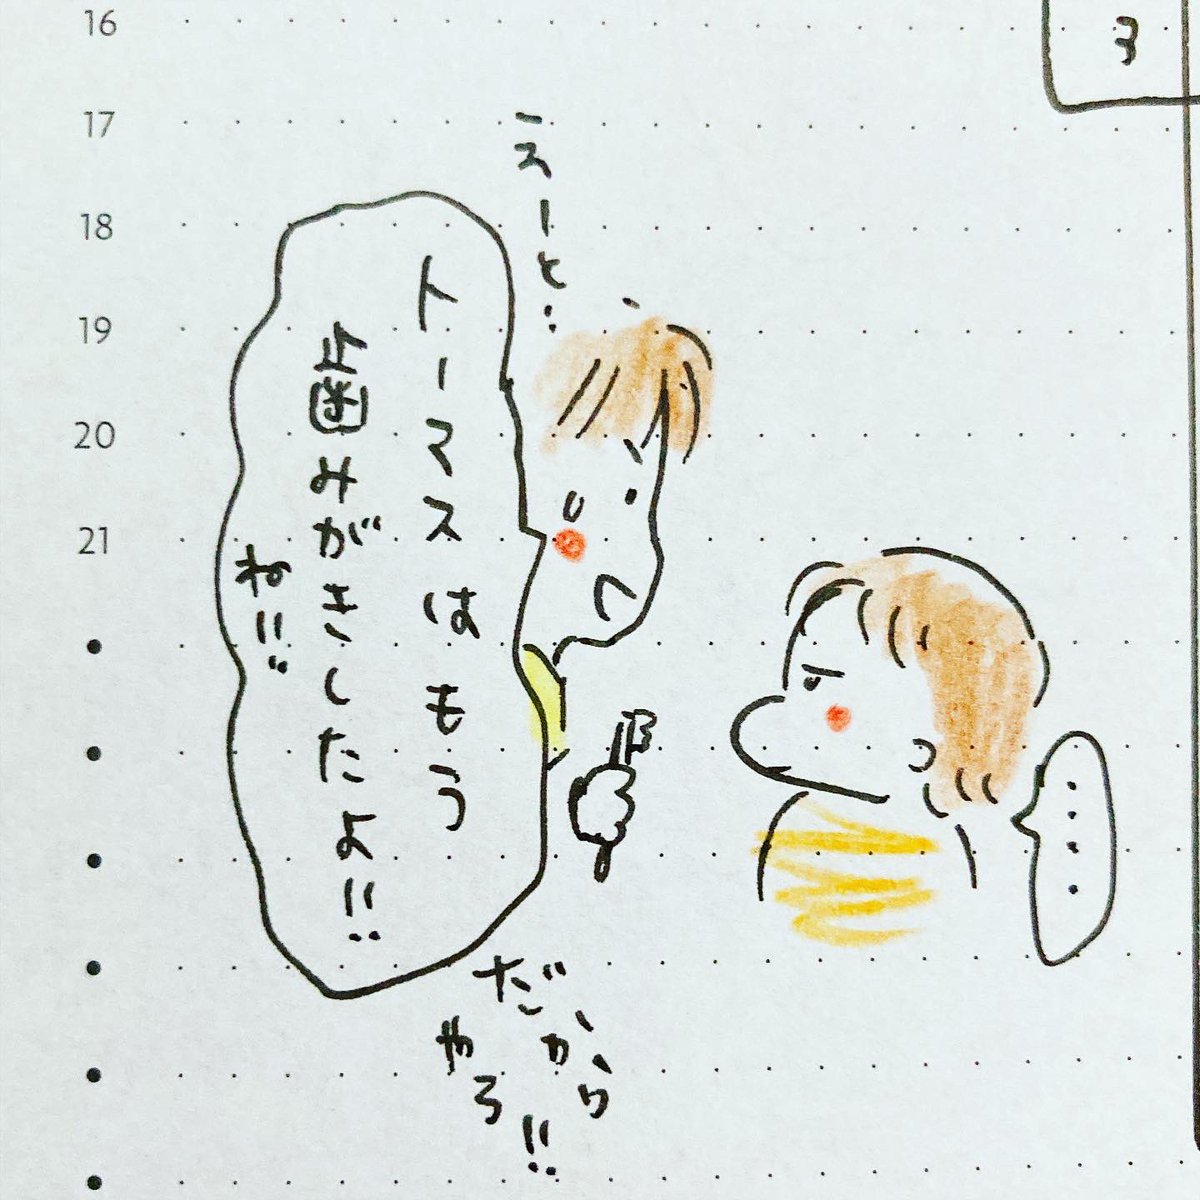 16
17
18
19
20
21
ろ
えーと…
トーマスはもう
歯みがきしたよ!!
ね!!
‥‥
だから
やろ!!